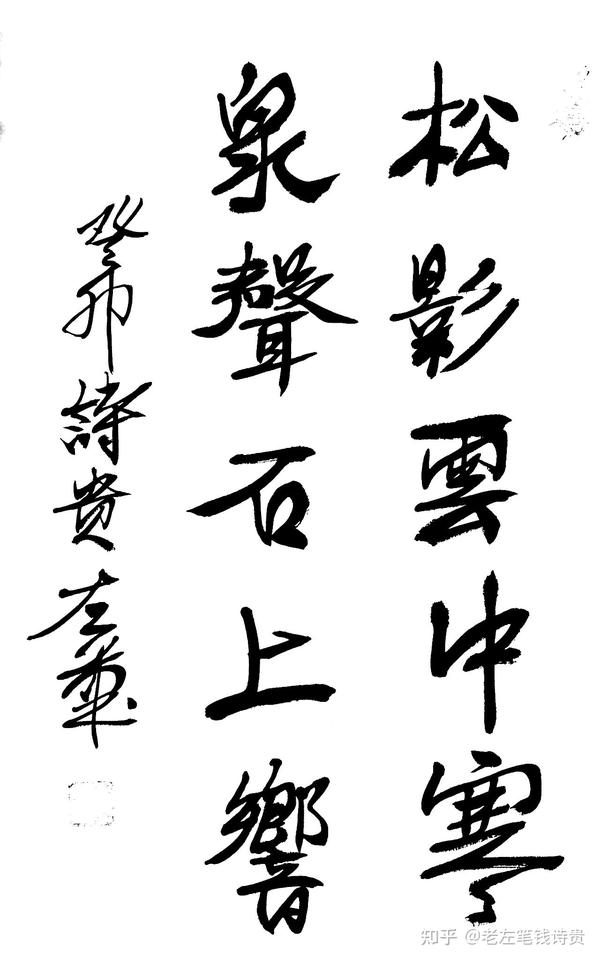 松影雲中寒
泉聲石上響
癸卯詩贵左笔
知乎 @老左笔钱诗贵